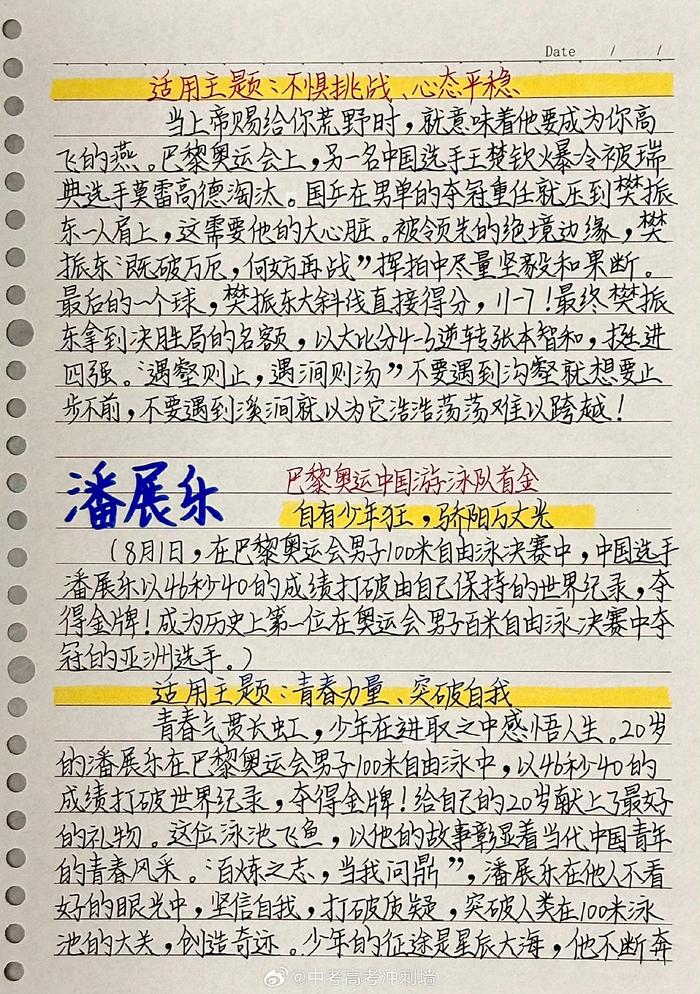 Date / /
适用主题:不惧挑战、心态平稳
当上帝赐给你荒野时,就意味着他要成为你高
飞的燕。巴黎奥运会上,另一名中国选手王楚钦火暴冷被瑞
典选手莫雷高德淘汰。国乒在男单的夺冠重任就压到樊振
东一人肩上,这需要他的大心脏。被领先的绝境边缘,樊
振东“既破万厄,何妨再战”挥拍中尽量坚毅和果断。
最后的一个球,樊振东大斜线直接得分,11-7!最终樊振
东拿到决胜局的名额,以大比分4-3逆转张本智和,挺进
四强。“遇壑则止,遇涧则汤”不要遇到沟壑就想要止
步不前,不要遇到溪涧就以为它浩浩荡荡难以跨越!
潘展乐
巴黎奥运中国游泳队首金
自有少年狂,骄阳万丈光
(8月1日,在巴黎奥运会男子100米自由泳决赛中,中国选手
潘展乐以46秒40的成绩打破由自己保持的世界纪录,夺
得金牌!成为历史上第一位在奥运会男子百米自由泳决赛中夺
冠的亚洲选手。)
适用主题:青春力量、突破自我
青春气贯长虹,少年在进取之中感悟人生。20岁
的潘展乐在巴黎奥运会男子100米自由泳中,以46秒40的
成绩打破世界纪录,夺得金牌!给自己的20岁献上了最好
的礼物。这位泳池飞鱼,以他的故事彰显着当代中国青年
的青春风采。“百炼之志,当我问鼎”,潘展乐在他人不看
好的眼光中,坚信自我,打破质疑,突破人类在100米泳
池的大关,创造奇迹。少年的征途是星辰大海,他不断奔
@中考高考冲刺墙